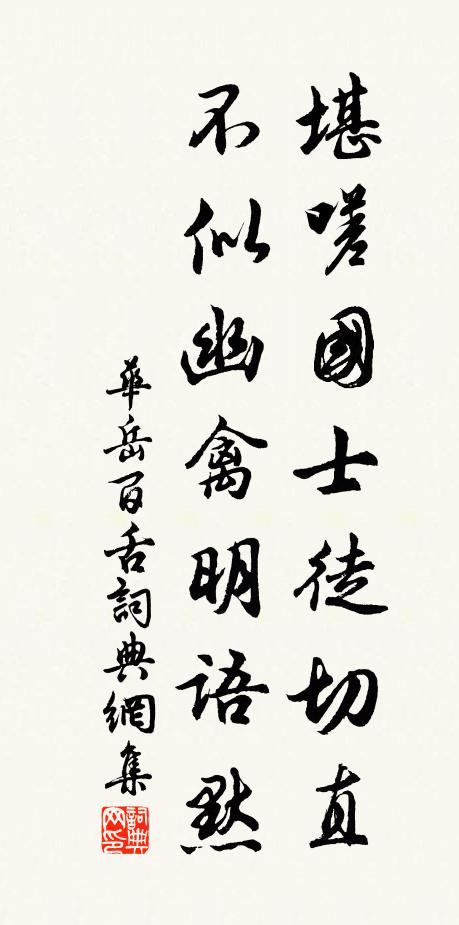 堪嗟國士徒切直
不似幽禽明語默
華岳百舌詞典網集
詞典网印